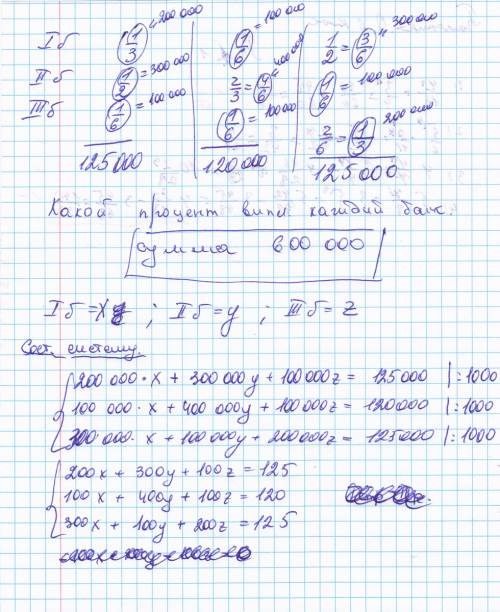 I б 1/3 = 200 000 | 1/6 = 100 000 | 1/2 = 3/6 = 300 000
II б 1/2 = 300 000 | 2/3 = 4/6 = 400 000 | 1/6 = 100 000
III б 1/6 = 100 000 | 1/6 = 100000 | 2/6 = 1/3 = 200 000
125000 | 120000 | 125000
Какой процент выпл. каждый банк.
сумма 600 000
I б = x ; II б = y ; III б = z
Сост. систему
200 000 · x + 300 000y + 100 000z = 125000 | :1000
100 000 · x + 400 000y + 100000z = 120000 | :1000
300 000 · x + 100 000y + 200000z = 125000 | :1000
200x + 300y + 100z = 125
100x + 400y + 100z = 120
300x + 100y + 200z = 125